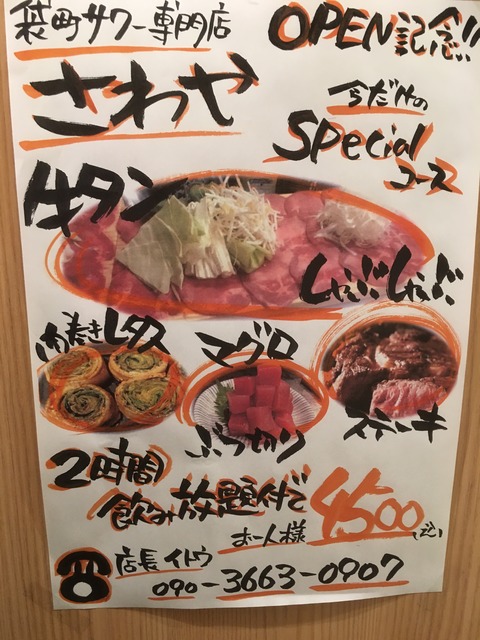 袋町サワー専門店
さわや
OPEN記念!!
今だけの
Special
コース
牛タン
しゃぶしゃぶ
肉巻きレタス
マグロ
ぶつ切り
ステーキ
2時間
飲み放題付で
お一人様
4500(込)
店長イトウ
090-3663-0907